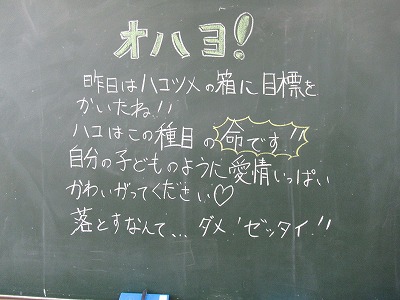 オハヨ!
昨日はハコツメの箱に目標を
かいたね!!
ハコはこの種目の命です!!
自分の子どものように愛情いっぱい
かわいがってください♡
落とすなんて...ダメ!ゼッタイ!!